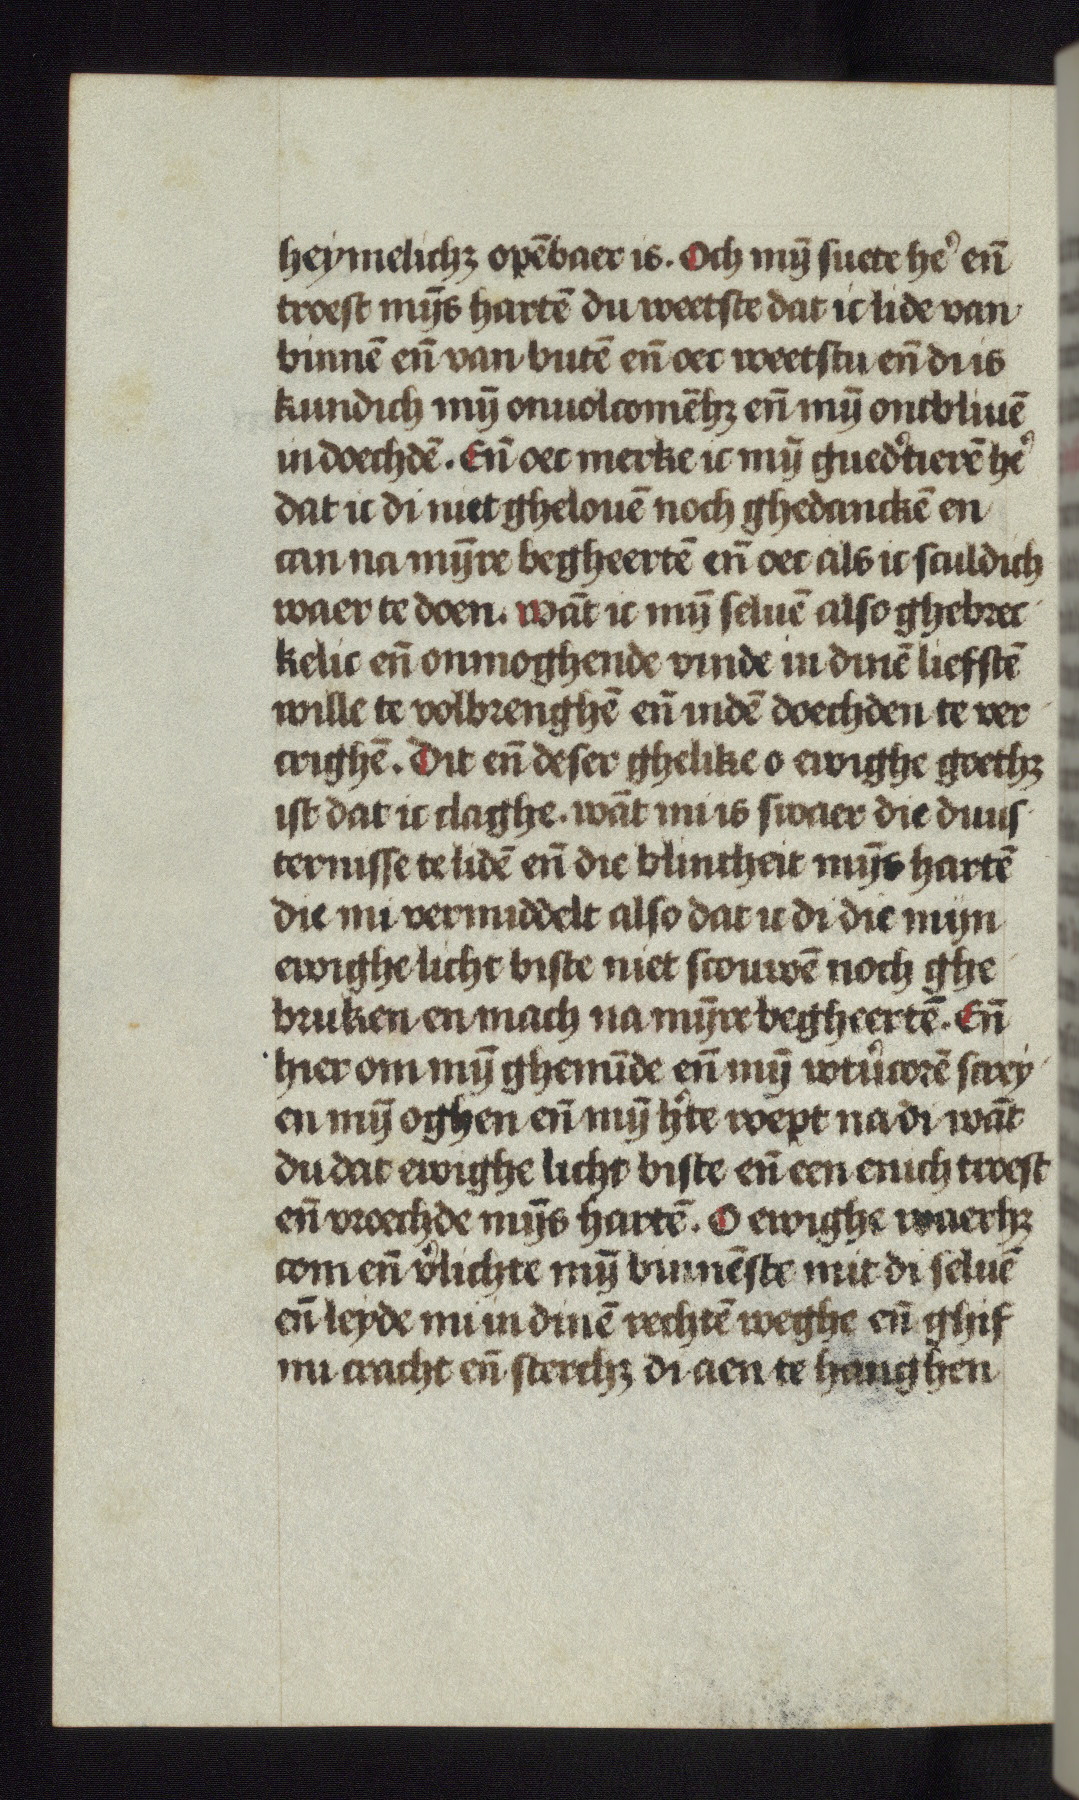 heymelichꝫ opēbaer is. Och mȳ suete heʾ en̄
troest mȳs hartē du weetste dat ic lide van
binnē en̄ van butē en̄ oec weetstu en̄ di is
kundich mȳ onuolcomēhꝫ en̄ mȳ ontbliuē
in doechdē. En̄ oec merke ic mȳ guedʾtierē heʾ
dat ic di niet ghelouē noch ghedanckē en
can na mȳre begheertē en̄ oec als ic sculdich
waer te doen. wāt ic mȳ seluē also ghebrec
kelic en̄ onmoghende vinde in dinē liefstē
wille te volbrenghē en̄ indē doechden te ver
crighē. Dit en̄ deser ghelike o ewighe goethꝫ
ist dat ic claghe. wāt mi is swaer die duus
ternisse te lidē en̄ die blintheit mȳs hartē
die mi vermiddelt also dat ic di die mijn
ewighe licht biste niet scouwē noch ghe
bruken en mach na mȳre begheertē. En̄
hier om mȳ ghemūde en̄ mȳ wtuʾcorē screy
en mȳ oghen en̄ mȳ hʾte roept na di wāt
du dat ewighe licht biste en̄ een enich troest
en̄ vroechde mȳs hartē. O ewighe waerhꝫ
com en̄ vʾlichte mȳ binnēste mit di seluē
en̄ leyde mi in dinē rechtē weghe en̄ ghif
mi cracht en̄ stercḥꝫ di aen te hanghen